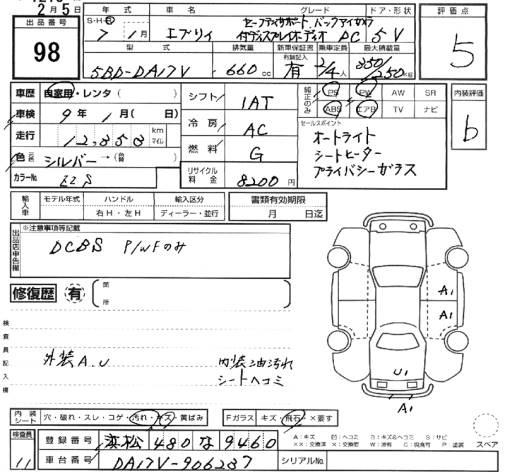 2月5日
出品番号
98
年式 車名 グレード ドア・形状
S・H・R
7 1月 エブリイ セーフティサポート バックアイカメラ
DC 5V
型式 排気量 新車保証書 乗車定員 最大積載量
有 2/4人 350/250kg
5BD-DA17V 660cc
評価点
5
車歴 自家用・レンタ( )
車検 9年1月( 日)
走行 12,353 km マイル
色 シルバー→(替 )
カラーNo. ZZS
シフト 1AT
冷房 AC
燃料 G
リサイクル料金 8200円
純正のみ PS PW AW SR
ABS エアB TV ナビ
セールスポイント
オートライト
シートヒーター
プライバシーガラス
内装評価
b
輸入車 モデル年式 ハンドル 輸入区分
右H・左H ディーラー・並行
書類有効期限
月 日迄
出品店申告欄
※注意事項等記載
DCBS P/WFのみ
修復歴 有 箇所
検査員記入欄
外装A.U
内装油汚れ
シートヘコミ
A1
A1
U1
A1
内装シート 穴・破れ・スレ・コゲ・汚れ・キズ・黄ばみ
Fガラス キズ・飛石・×要す
A:キズ
スペア
検査員
11
登録番号 浜松 480 な 9460
車台番号 DA17V-906237
シリアルNo.